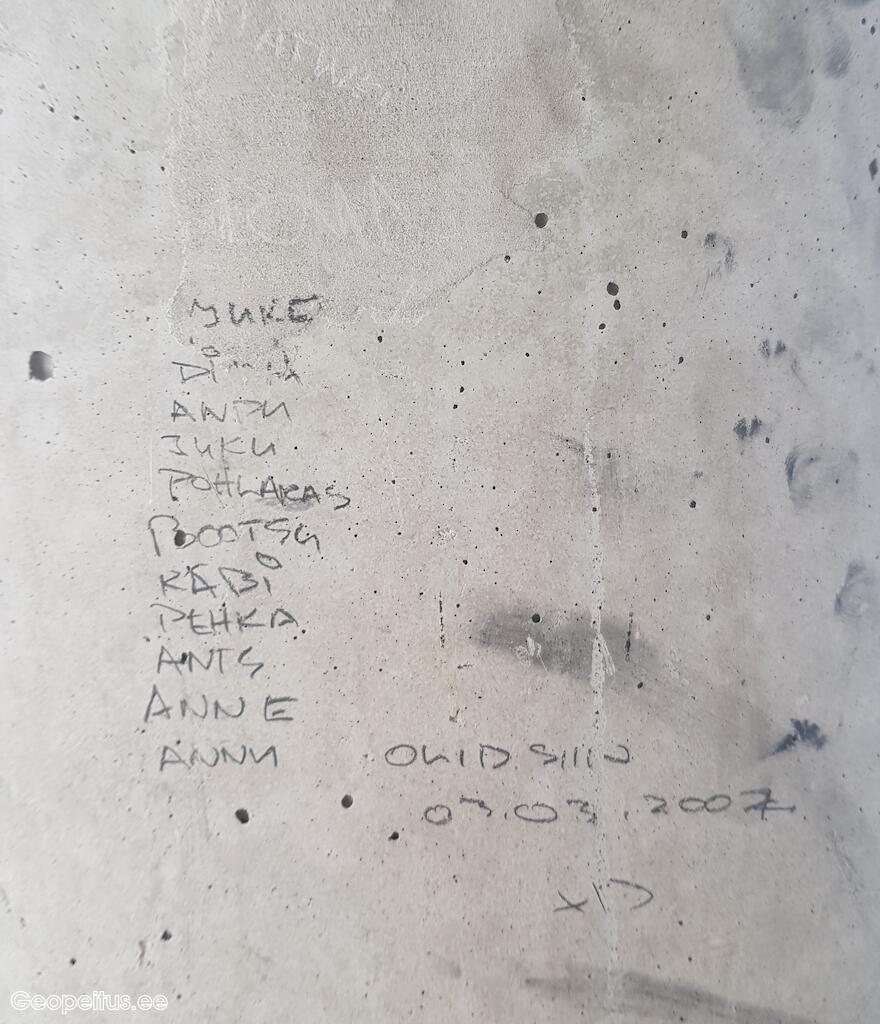 JUKE
DIMA
ANDU
JUKU
POHLAKAS
POOOTSU
KABI
PEHKA
ANTS
ANNE
ANNU OLID SIIN
03.03.2007
XD
Geopeitus.ee